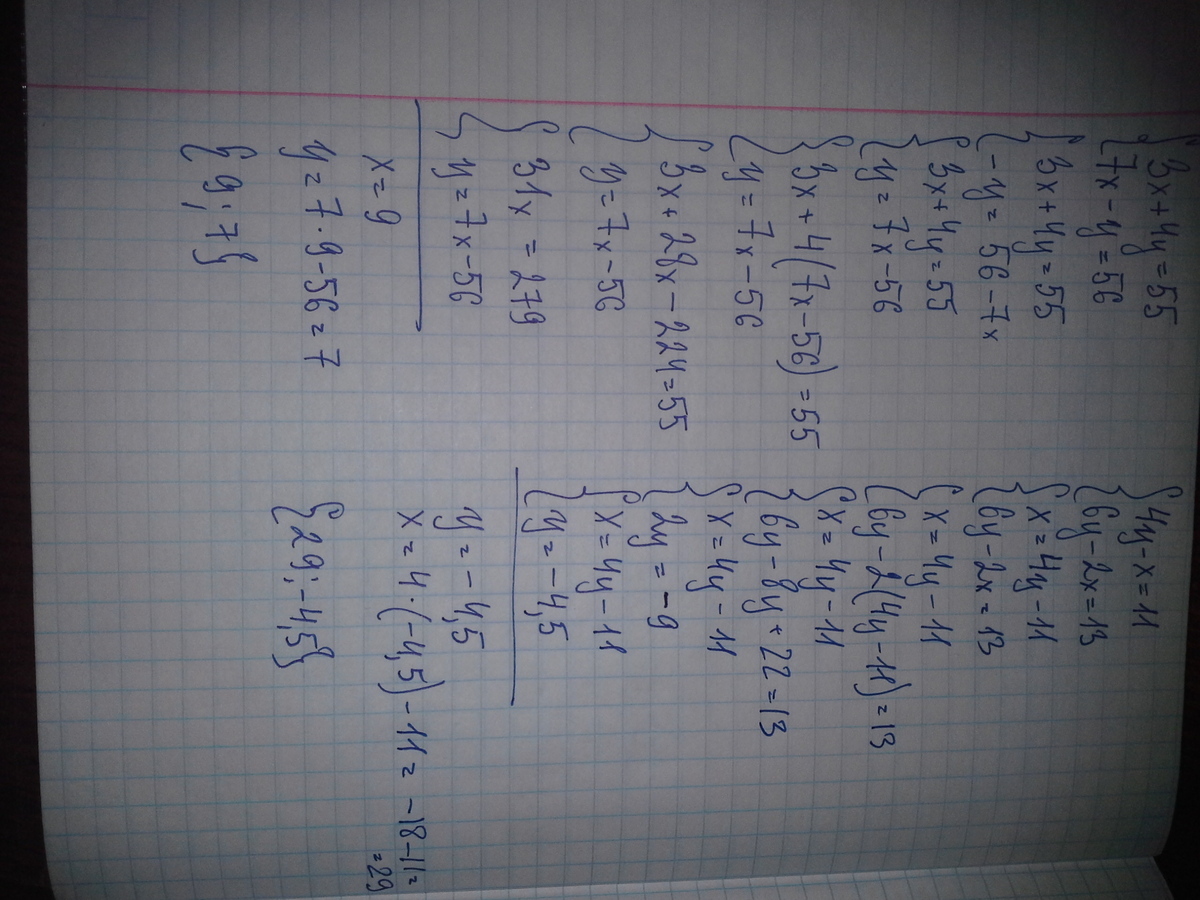 {3x+4y=55
{7x-y=56
{3x+4y=55
{-y=56-7x
{3x+4y=55
{y=7x-56
{3x+4(7x-56)=55
{y=7x-56
{3x+28x-224=55
{y=7x-56
{31x=279
{y=7x-56
x=9
y=7·9-56=7
{9;7}
{4y-x=11
{6y-2x=13
{x=4y-11
{6y-2x=13
{x=4y-11
{6y-2(4y-11)=13
{x=4y-11
{6y-8y+22=13
{x=4y-11
{2y=-9
{x=4y-11
{y=-4,5
y=-4,5
x=4·(-4,5)-11=-18-11=
=29
{29;-4,5}